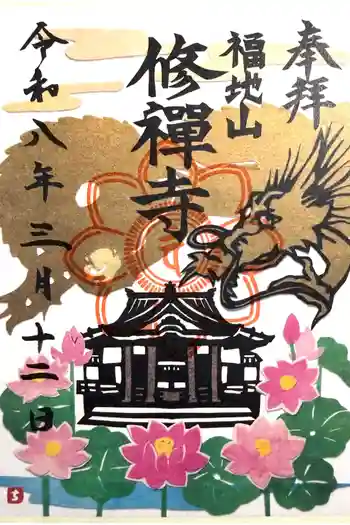 奉拝
福地山
修禪寺
令和八年三月十二日